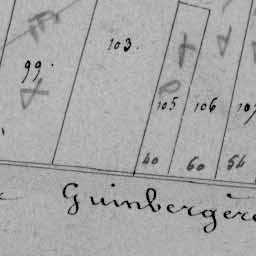 103.
99.
105 106 107
40 60 54
Guinbergère